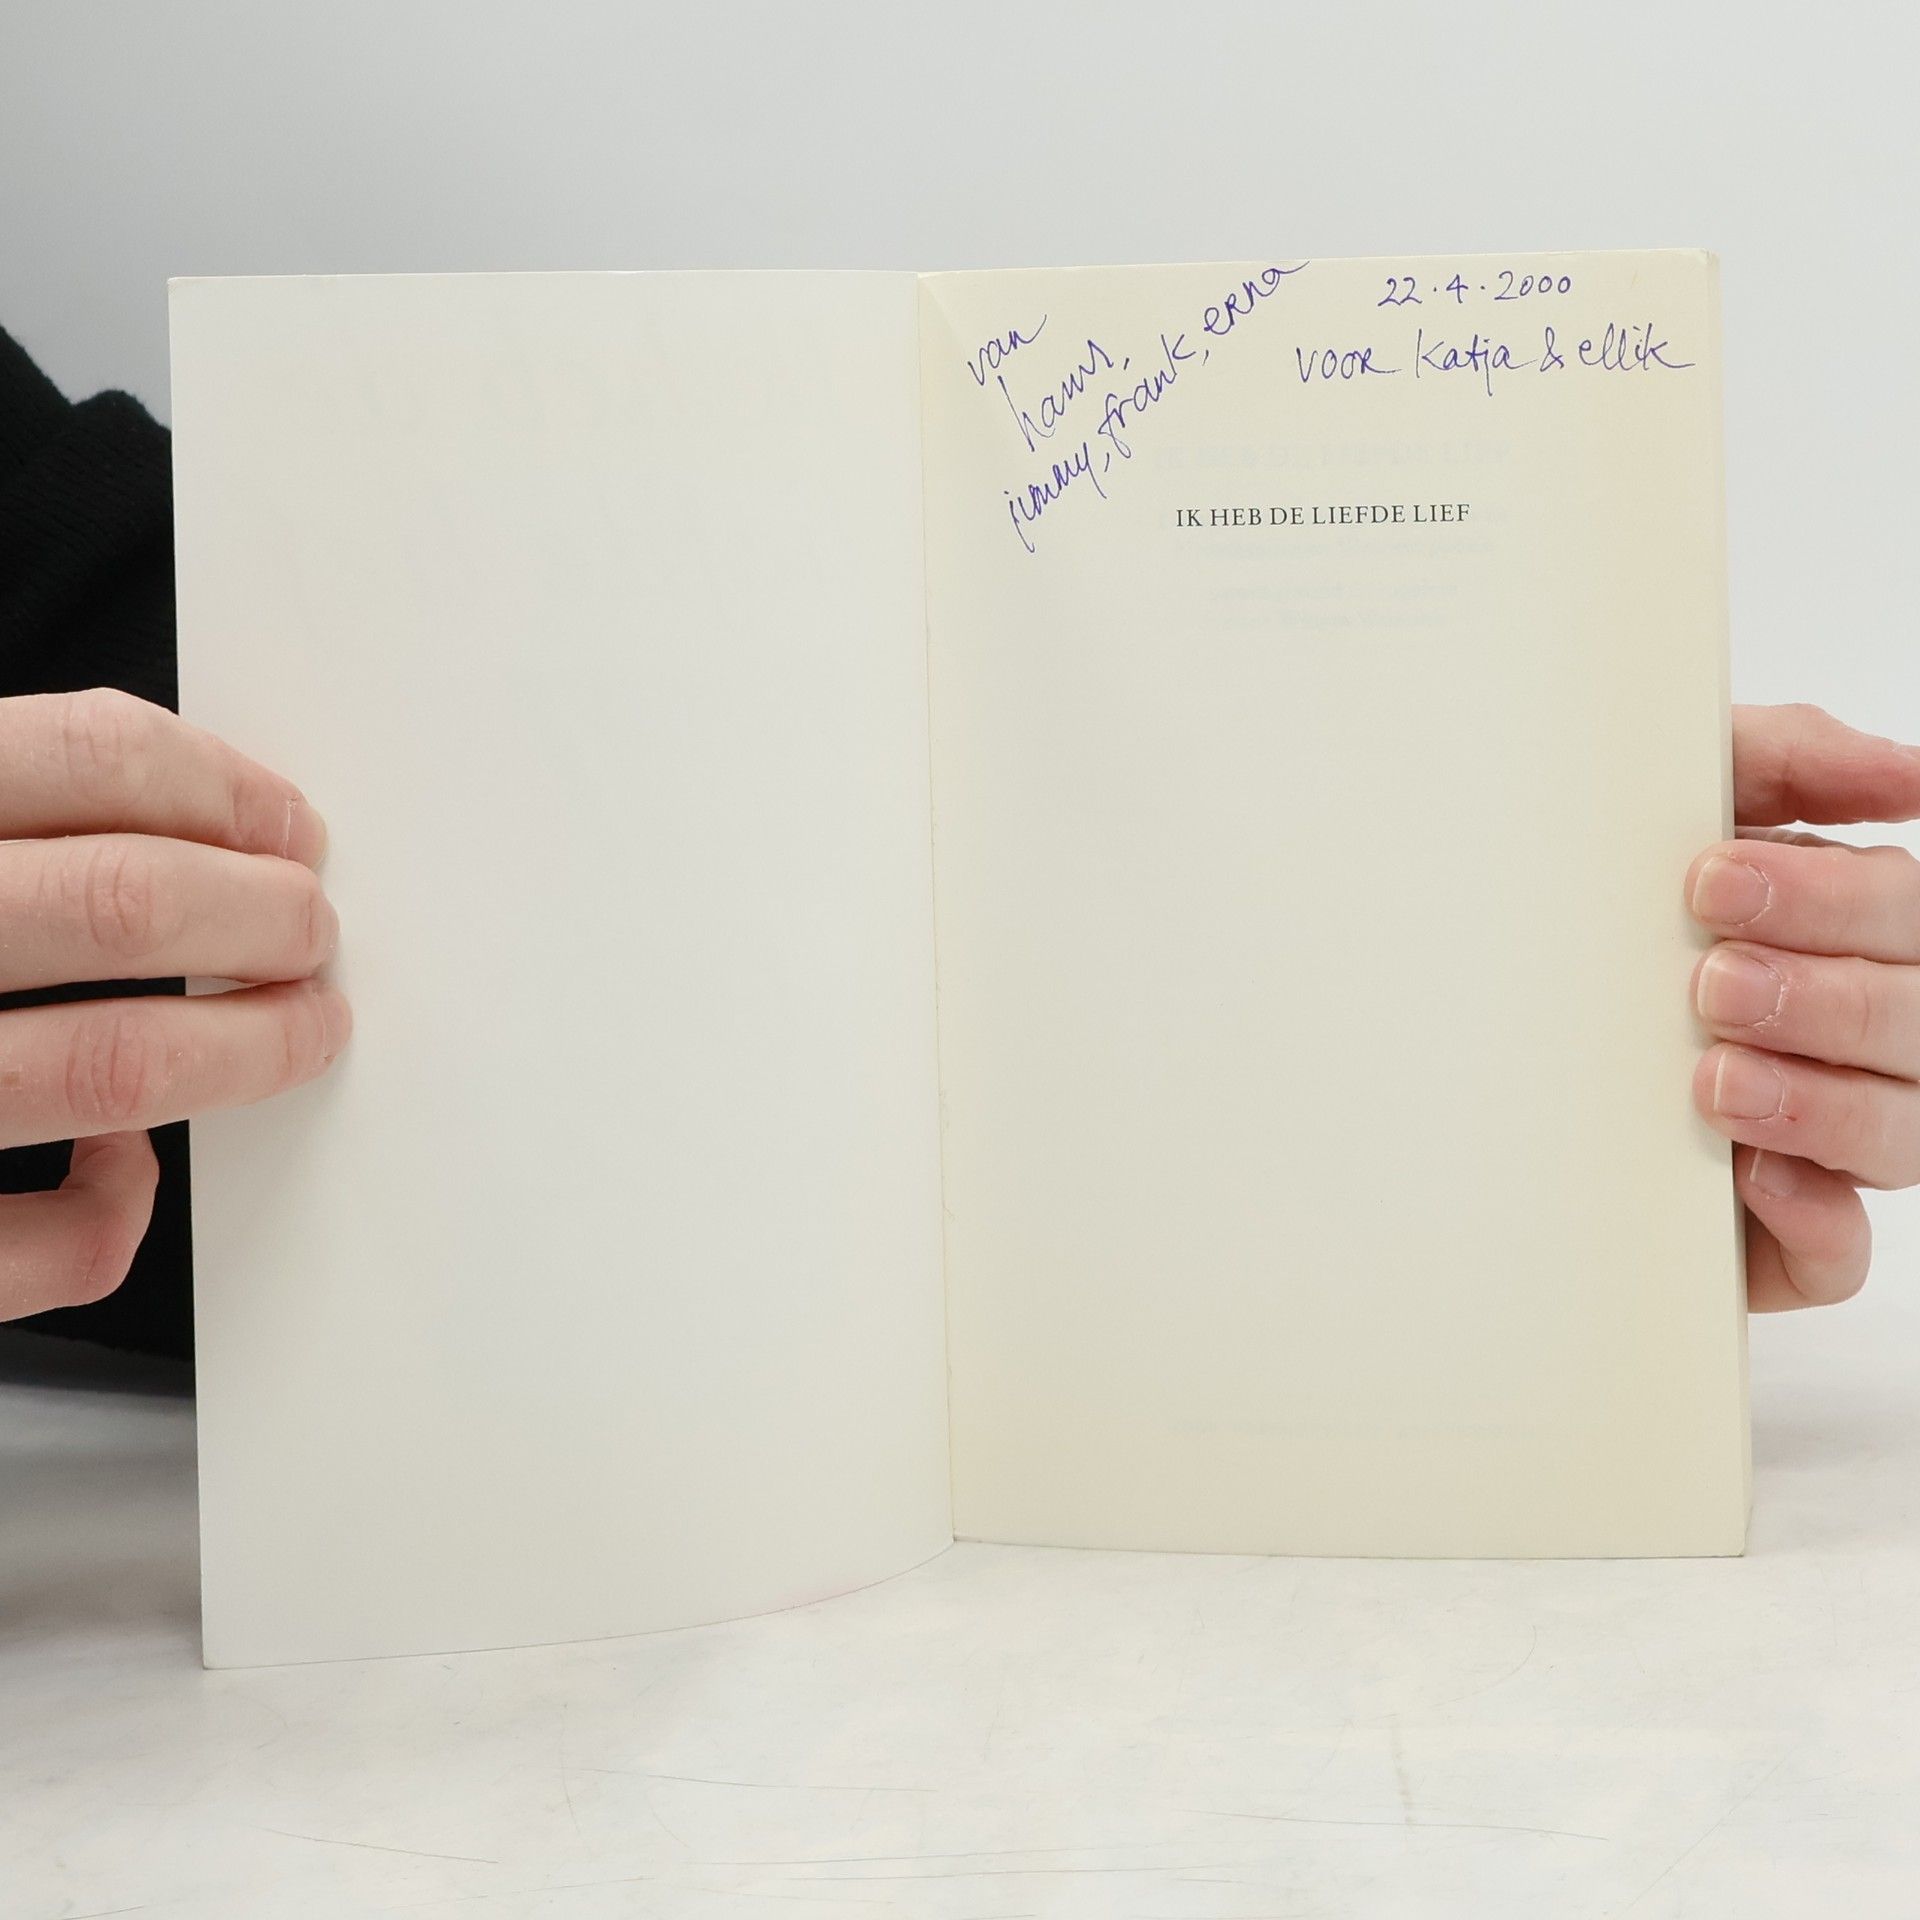 22.4.2000
voor Katja & ellik
van
hans,
jimmy, frank, erna
IK HEB DE LIEFDE LIEF